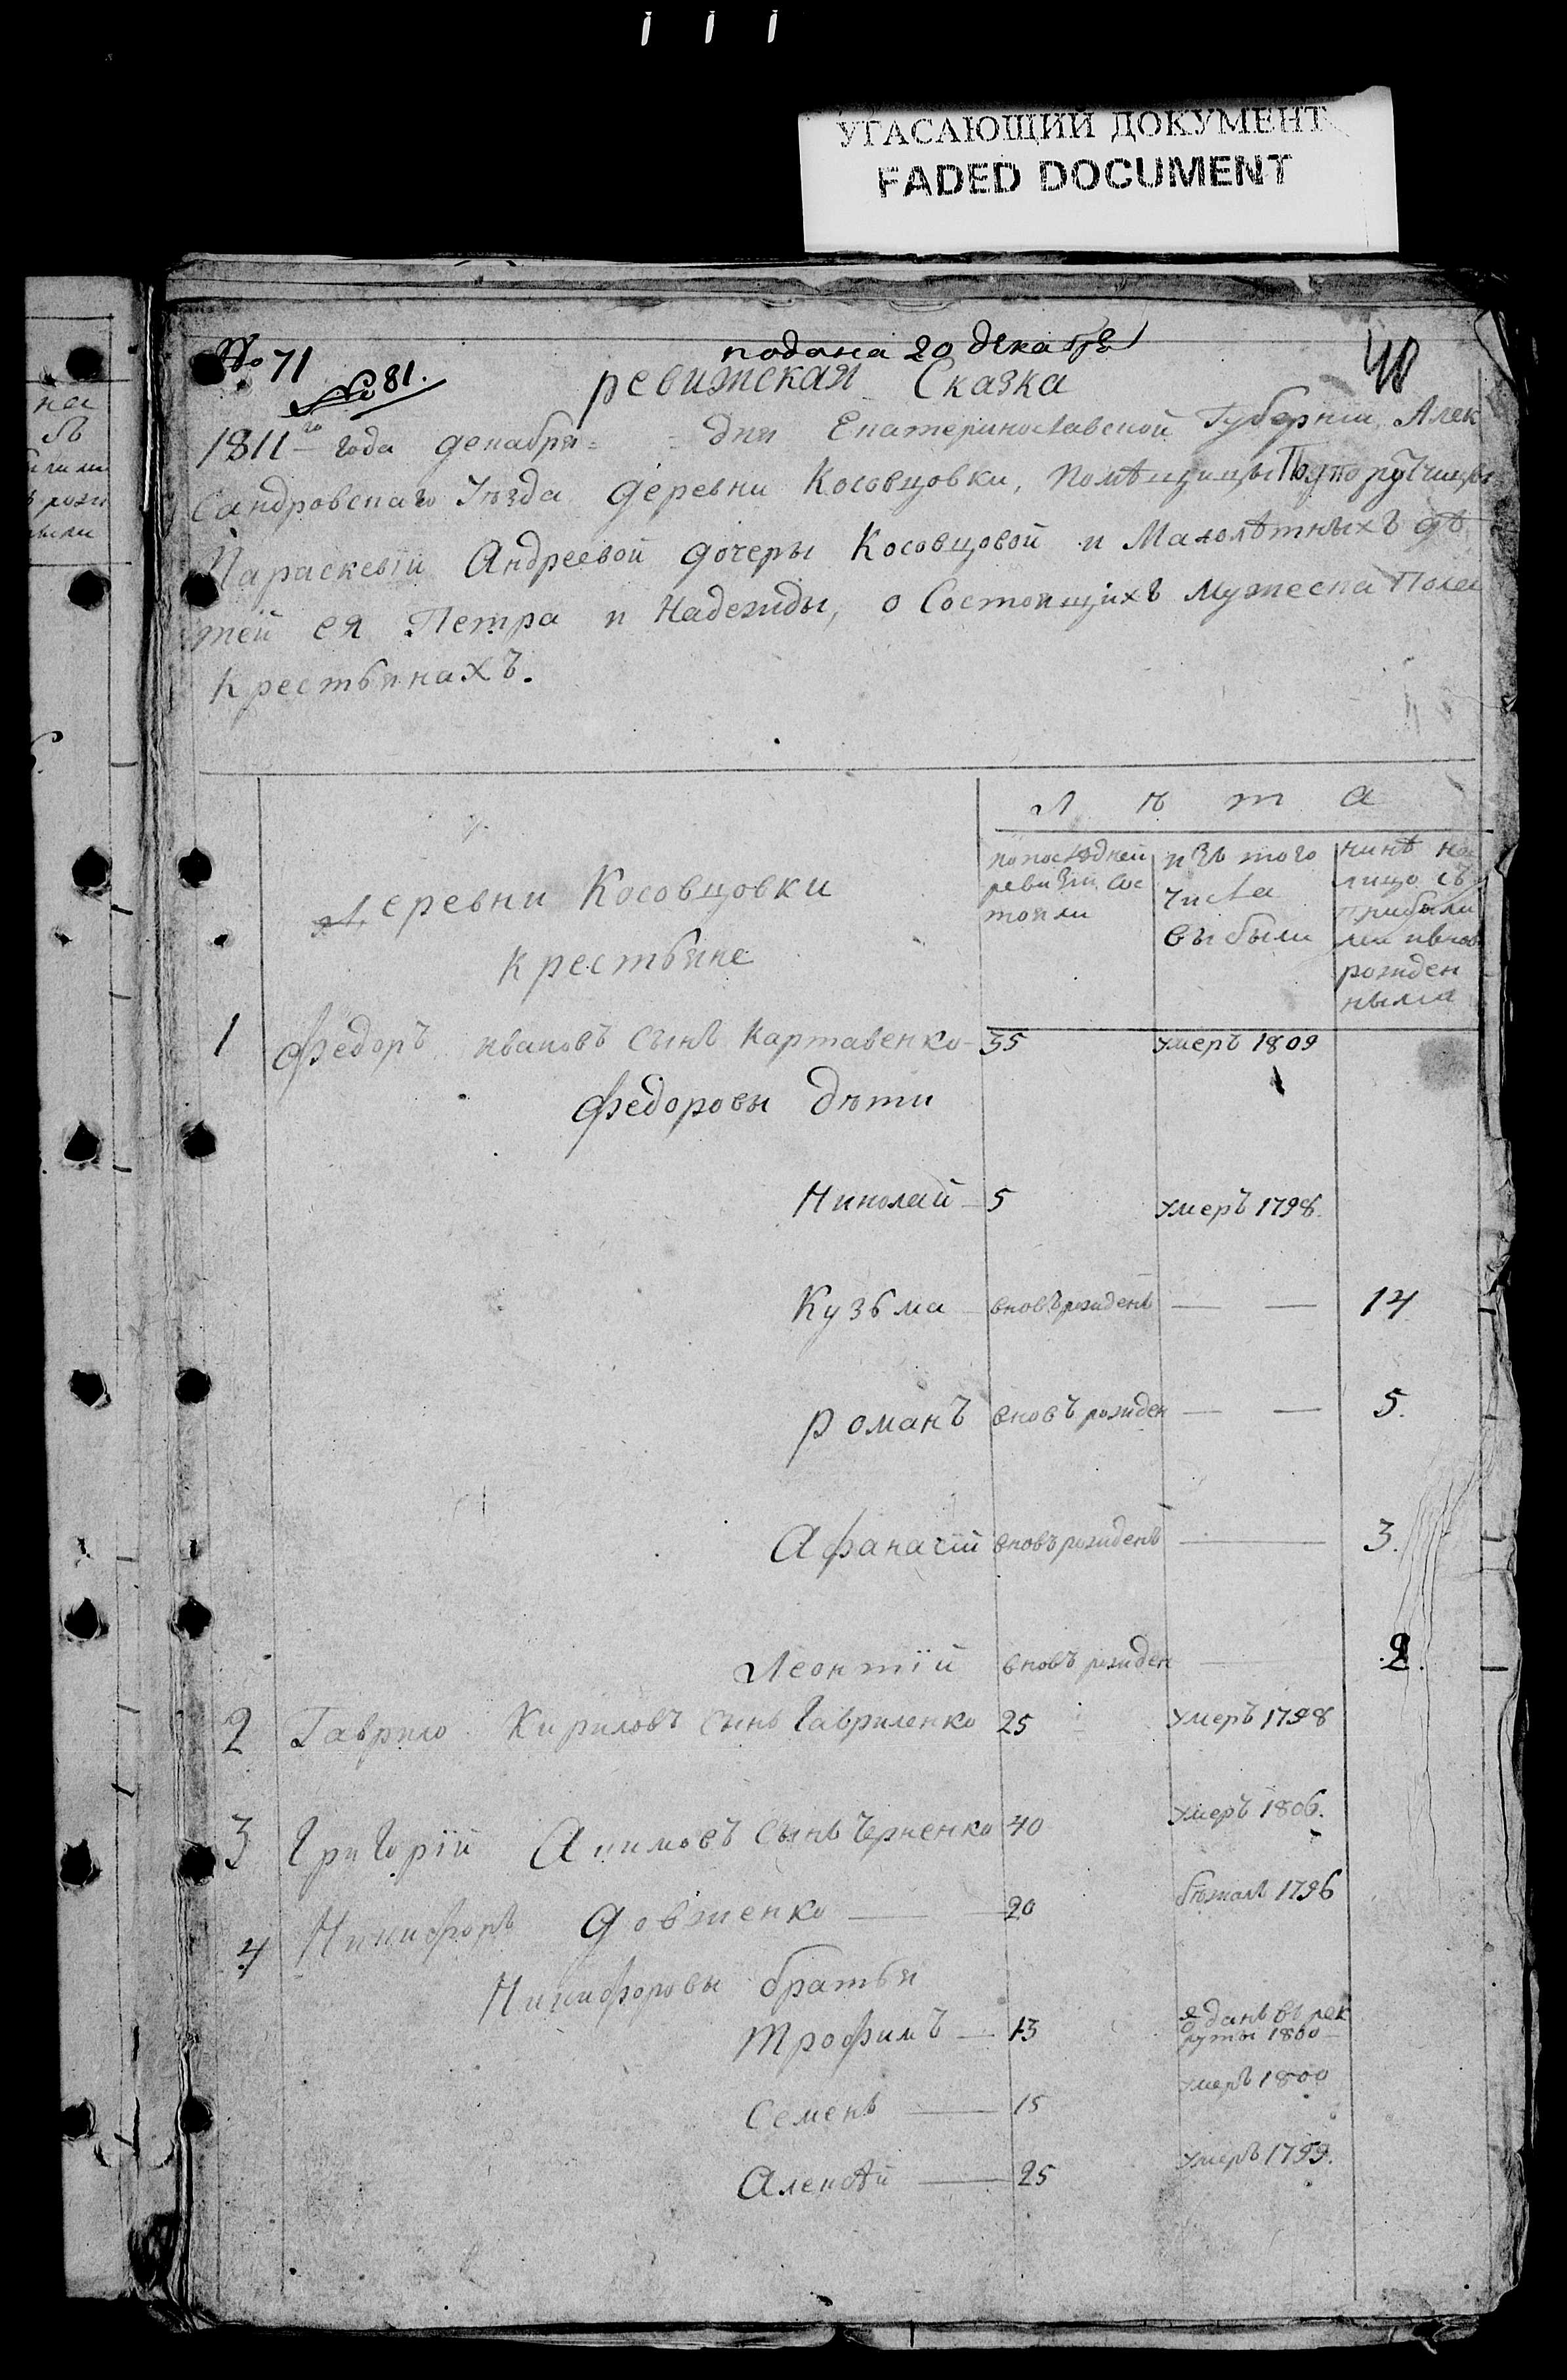 УГАСАЮЩИЙ ДОКУМЕНТ
FADED DOCUMENT
№ 71
подана 20 декабр
48
№ 81.
ревижская Сказка
1811го года декабря = = дня Екатериносlавской Губерніи, Алек
сандровскаго Уѣзда деревни Косовцовки, помѣщицы Подпорутчицы
Параскевіи Андреевой дочеры Косовцовой и Малолѣтныхъ дѣ
тей ея Петра и Надежды, о Состоящихъ Мужеска Пола
крестьянахъ.
Л ѣ т а
Деревни Косовцовки
крестьяне
попослѣдней
ревизіи сос
тояли
изъ того
числа
выбыли
нинѣ на
лицо съ
прибыли
ми ивнов
рожден
ныма
1 Федоръ ивановъ сынъ Картавенко 35 умеръ 1809
Федоровы дѣти
Николай 5 умеръ 1798.
Кузьма вновърожденъ — — 14
романъ вновърожден — — 5.
Афанасій вновърожденъ — 3.
Леонтій вновърожден — 2.
2 Гаврило Кириловъ сынъ Гавриленко 25 умеръ 1798
3 Григорій Акимовъ сынъ Черненко 40 умеръ 1806.
4 Никифоръ Довженко — 20 бѣжалъ 1796
Никифоровы братья
Трофимъ — 13 отданъ въ рек
руты 1800
Семенъ — 15 умеръ 1800
Алексѣй — 25 умеръ 1799.